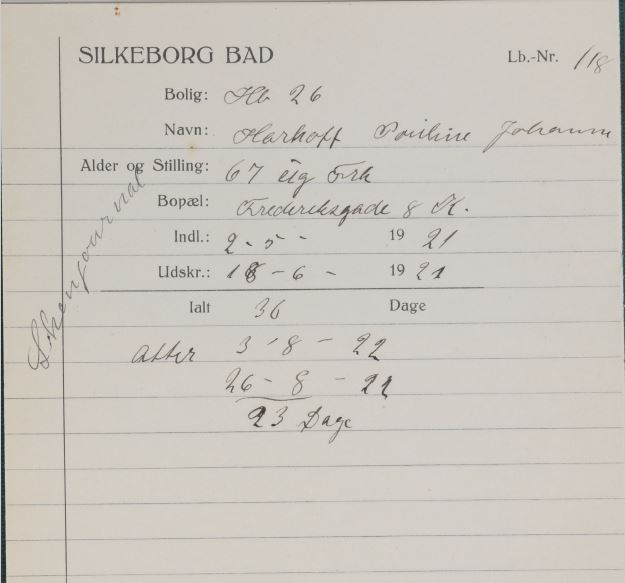 SILKEBORG BAD Lb.-Nr. 118
Bolig: Hb 26
Navn: Harhoff Pouline Johanne
Alder og Stilling: 67 aig Frk
Bopæl: Frederiksgade 8 K.
Indl.: 2 - 5 - 19 21
Udskr.: 18 - 6 - 19 21
Ialt 36 Dage
atter 3 - 8 - 22
26 - 8 - 22
23 Dage